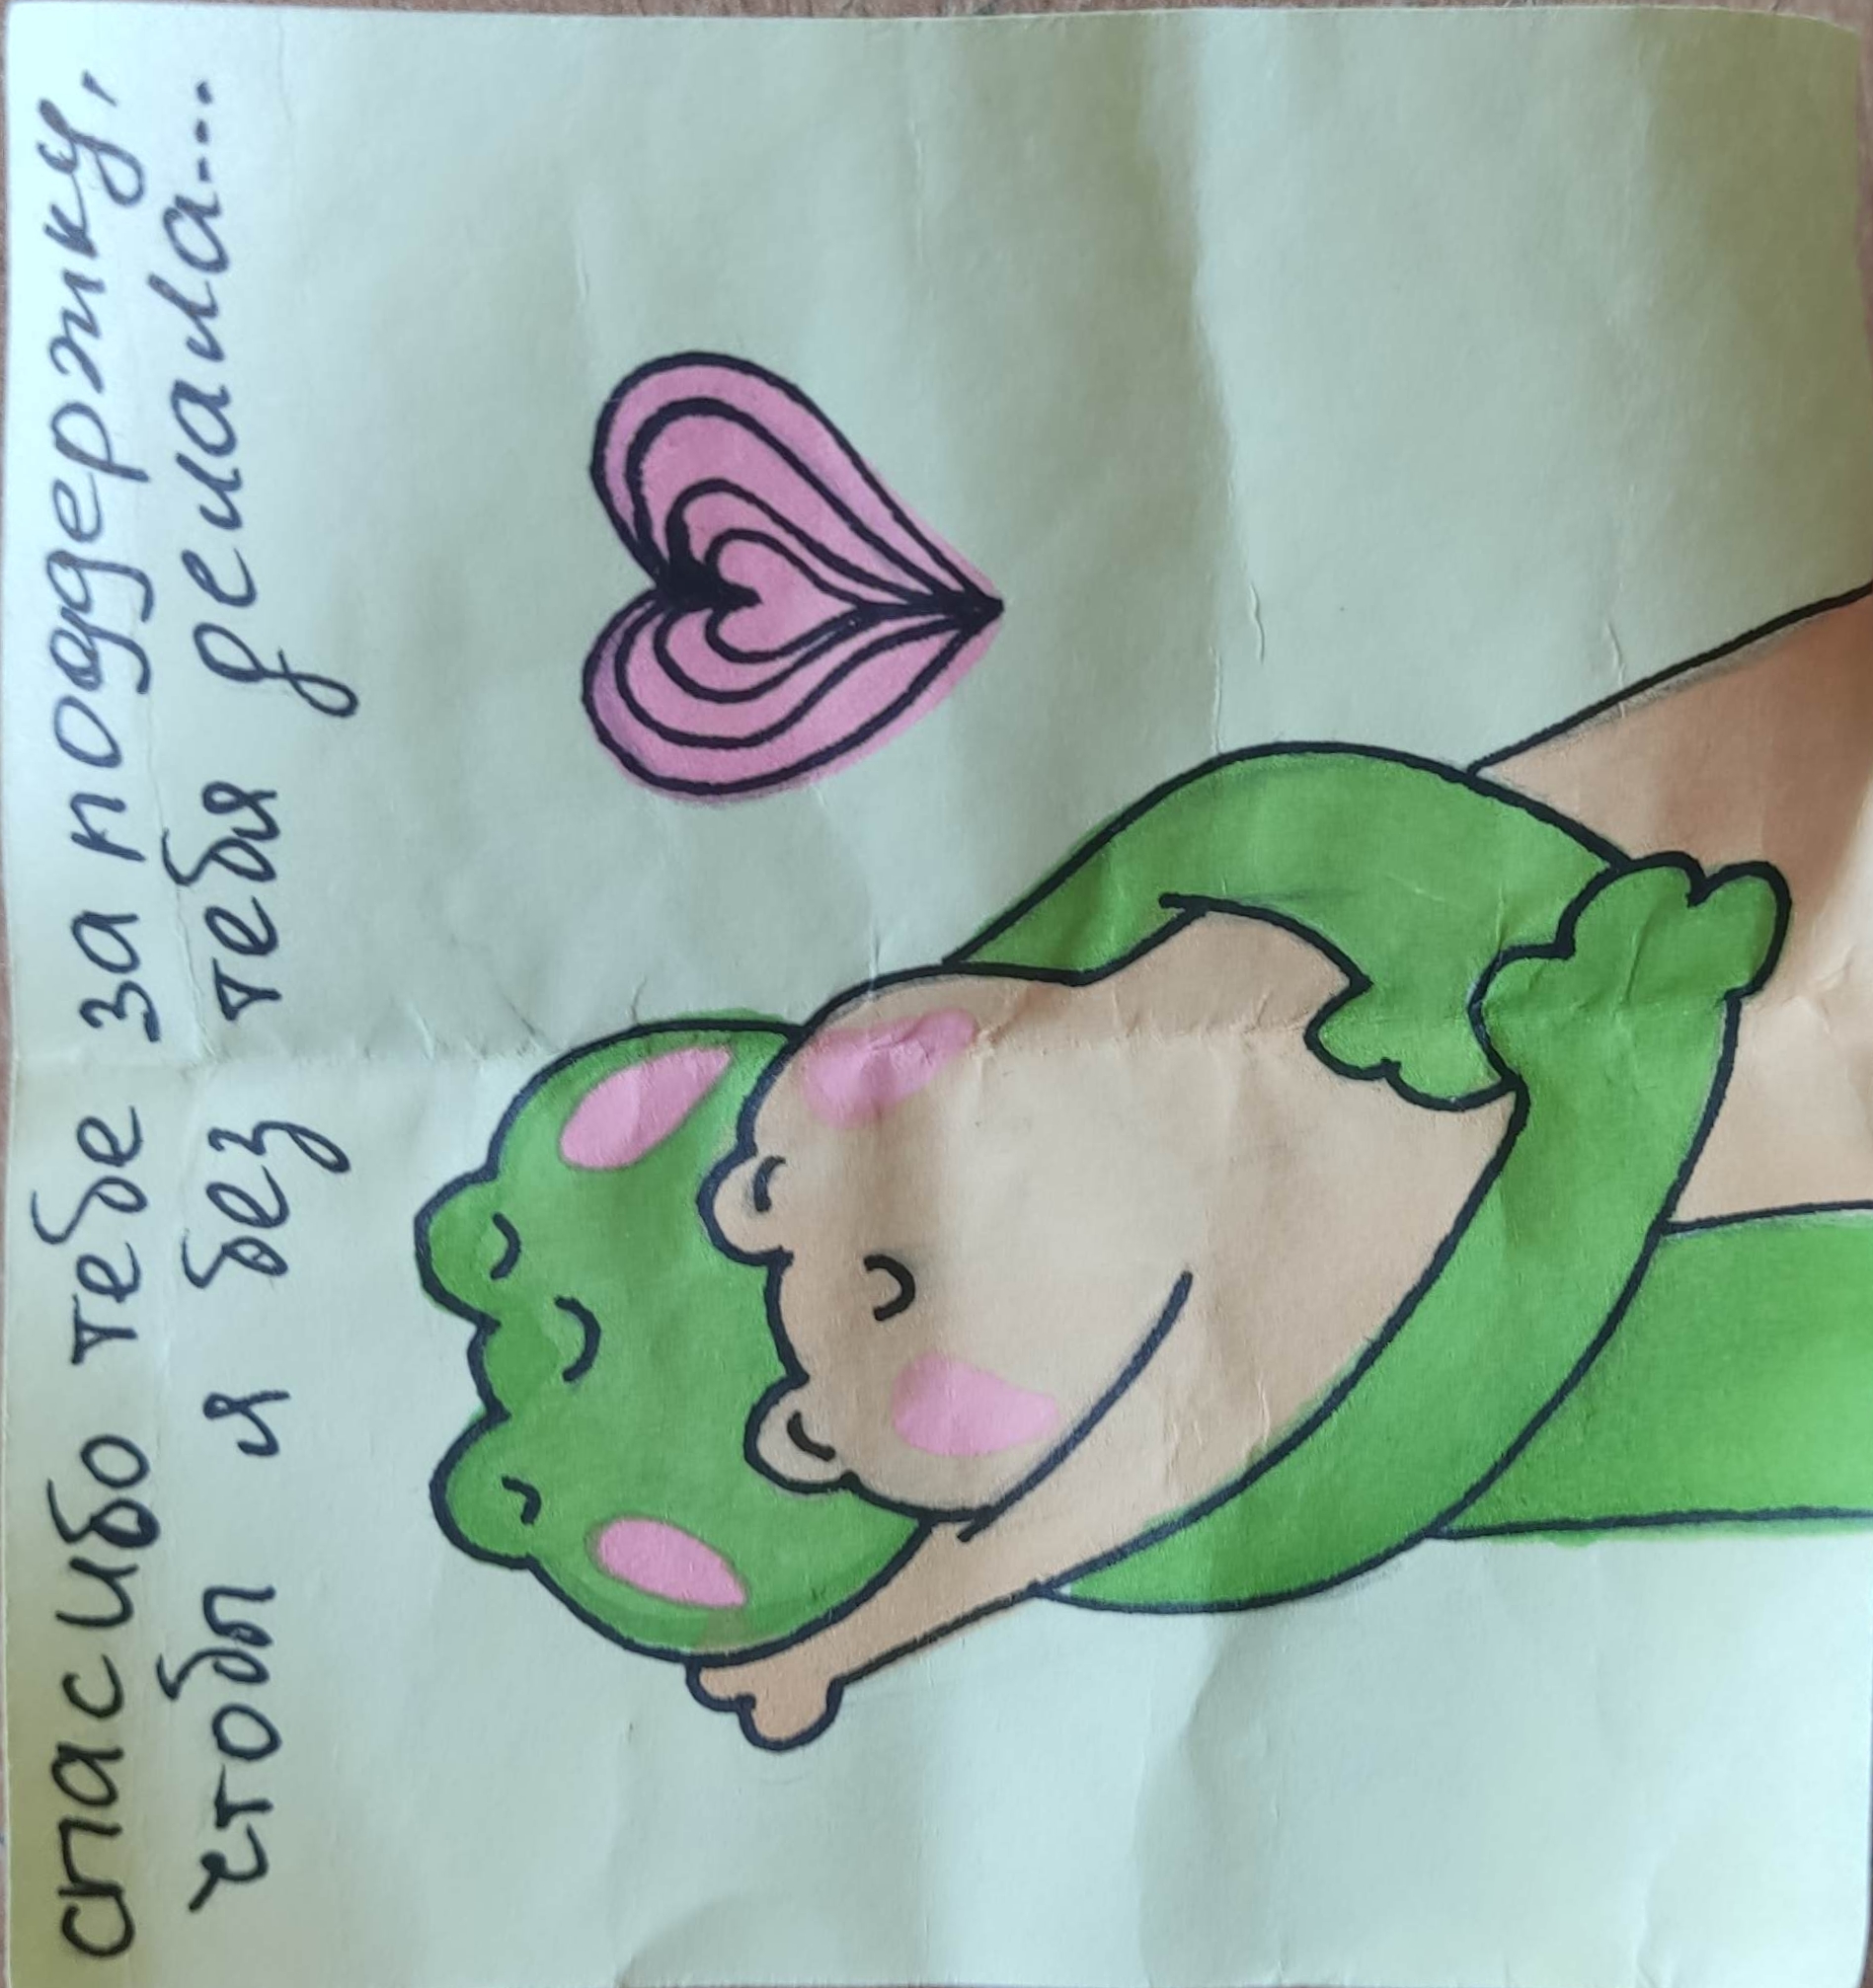 спасибо тебе за поддержку,
чтобы я без тебя делала...